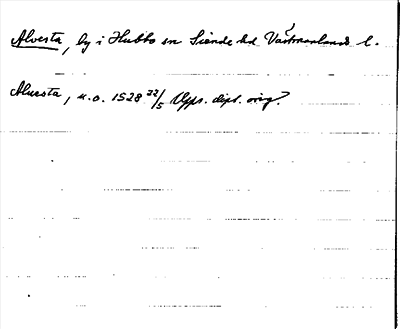 Alvesta, by i Hubbo sn Siende hd Västmanlands l.
Alwesta, u.o. 1528 22/5 Upps. dipl. orig?